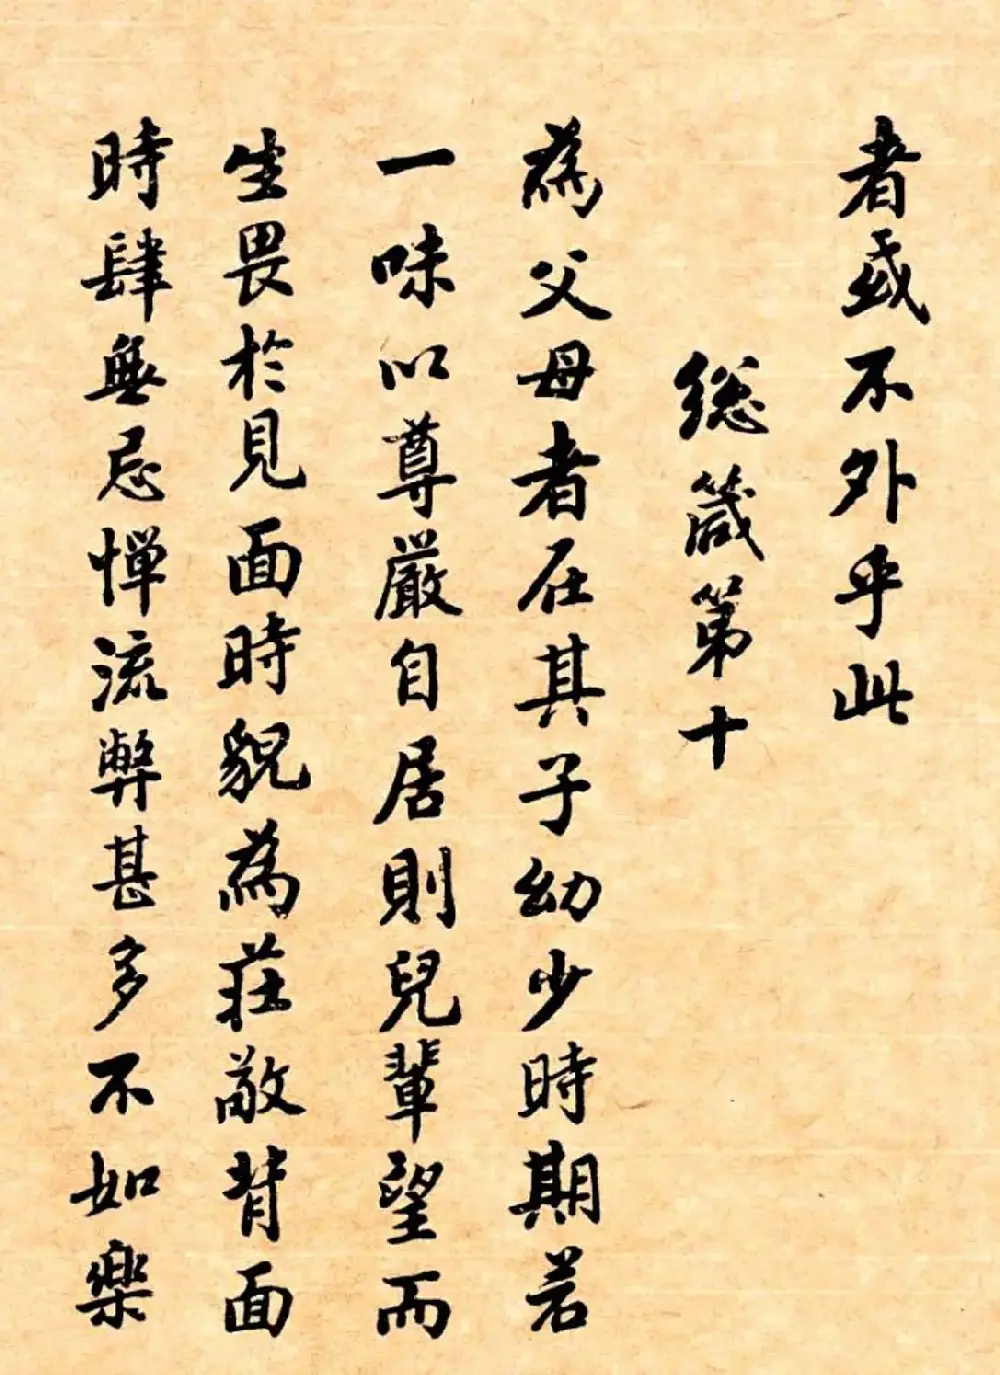 者或不外乎此
總箴第十
為父母者在其子幼少時期若
一味以尊嚴自居則兒輩望而
生畏於見面時貌為莊敬背面
時肆無忌憚流弊甚多不如樂